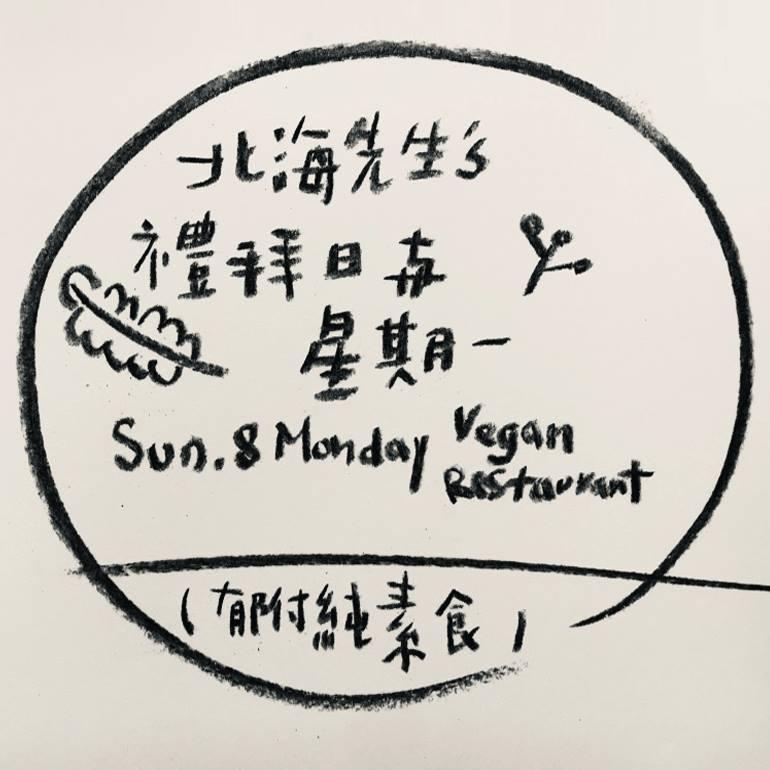 北海先生's
禮拜日卉
星期一
Sun. & Monday Vegan
Restaurant
(郁付純素食)